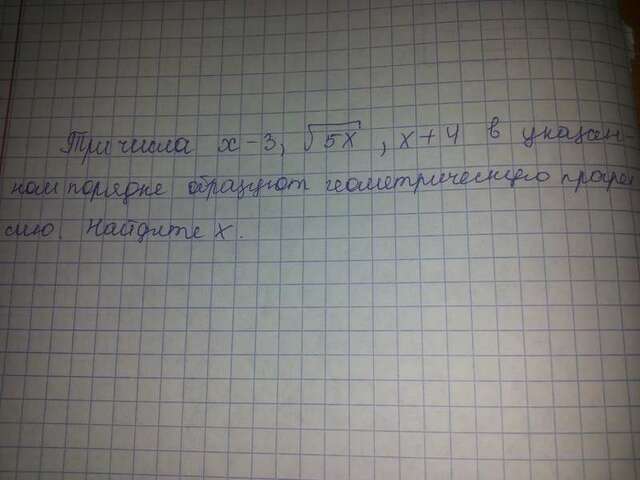 Три числа x-3, √5x, x+4 в указан-
ном порядке образуют геометрическую прогрес
сию. Найдите x.